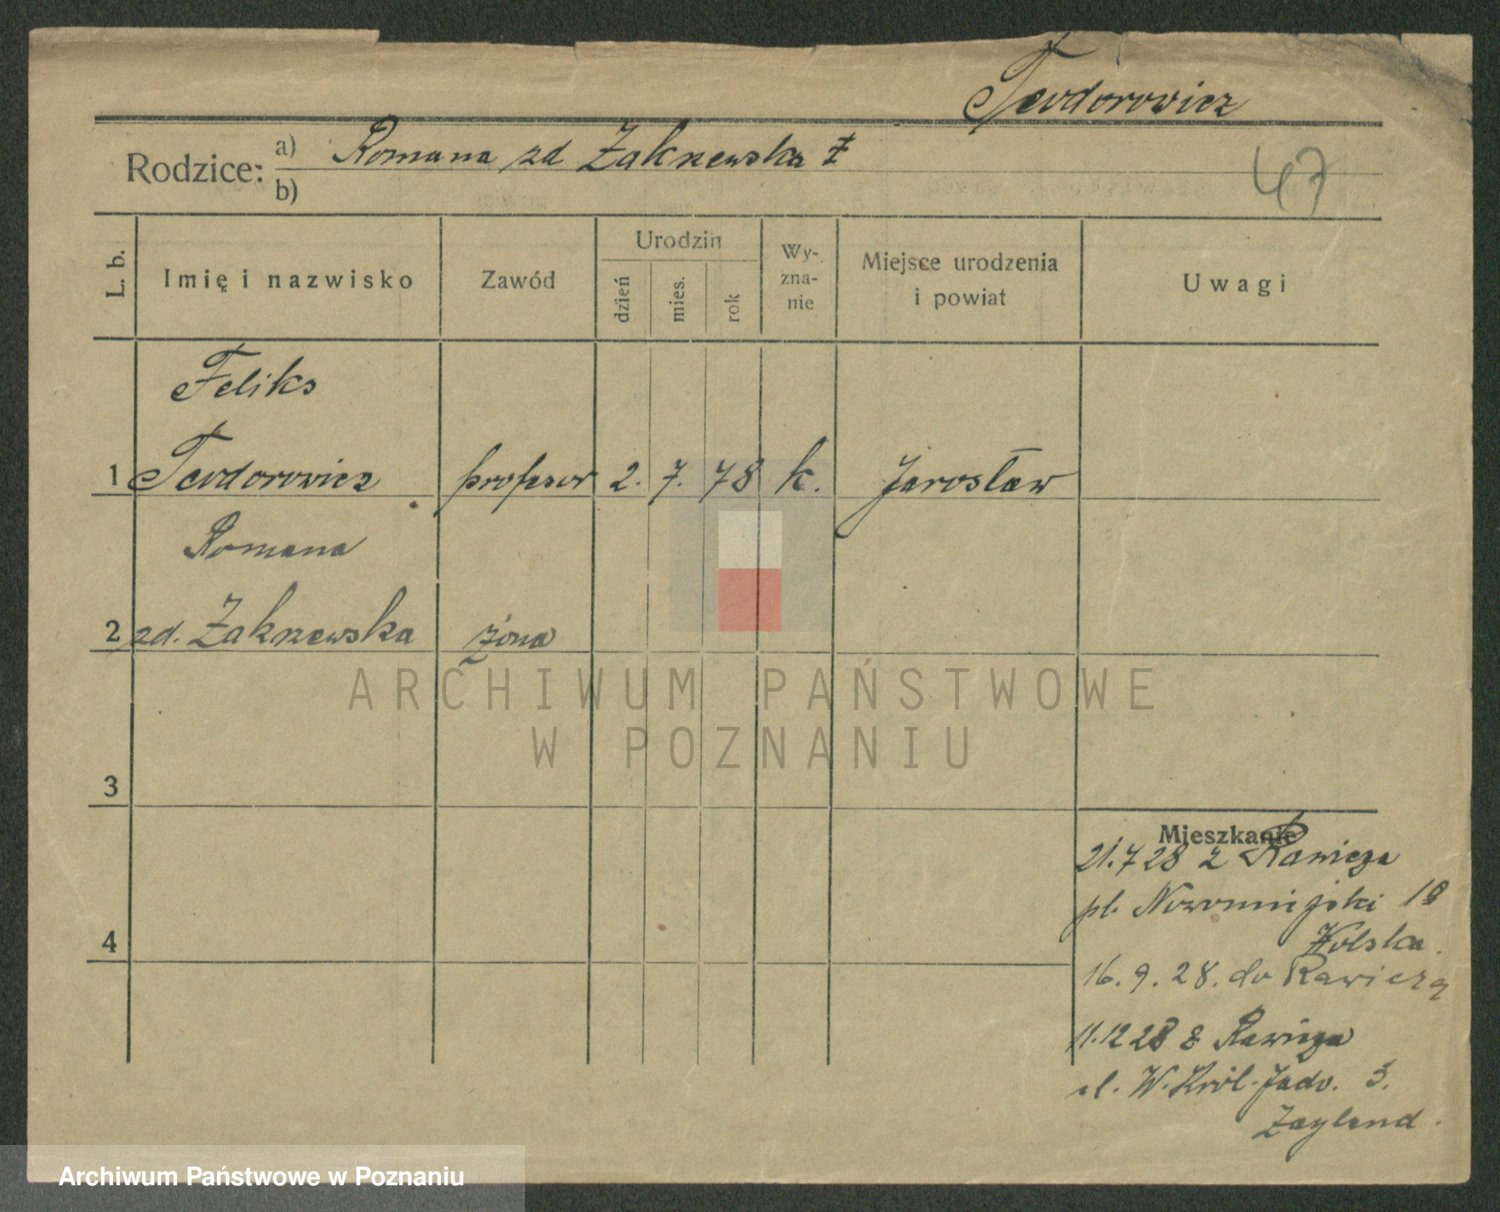 Teodorowicz
Rodzice: a) Romana zd Zakrzewska
b)
47
L. b.
Imię i nazwisko
Zawód
Urodzin
dzień
mies.
rok
Wy-
zna-
nie
Miejsce urodzenia
i powiat
Uwagi
Feliks
1 Teodorowicz profesor 2. 7. 78 k. Jarosław
Romana
2 zd. Zakrzewska żona
3
4
Mieszkanie
21.7 28 z Rawicza
pl. Nowomiejski 18
Wolska.
16. 9. 28. do Rawicza
11.12 28 z Rawicza
W. Król. Jadw. 3.
Zayland.
ARCHIWUM PAŃSTWOWE
W POZNANIU
Archiwum Państwowe w Poznaniu